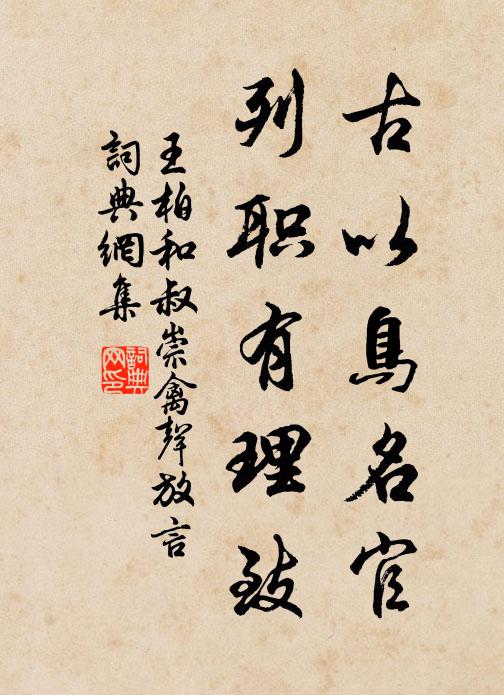 古以鳥名官
列职有理致
王柏和叔崇禽聲放言
詞典網集
詞典
网印